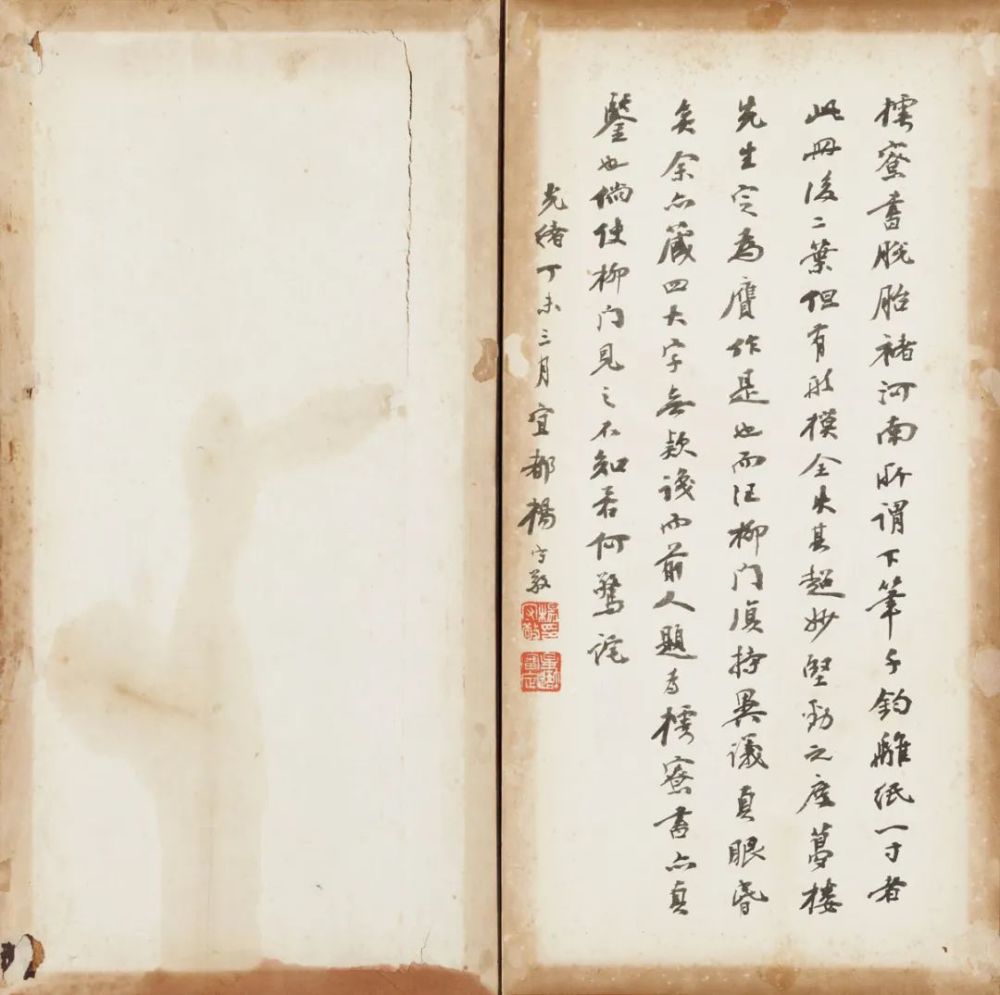 樗寮書脫胎褚河南所謂下筆千鈞離紙一寸者
此冊後二葉但有形模全失其超妙堅勁之度夢樓
先生定為贗作是也而汪柳门持異議真眼昏
矣余亦藏四大字無款識而前人題為樗寮書亦真
鑒也倘使柳门見之不知若何驚詫
光緒丁未三月宜都楊守敬